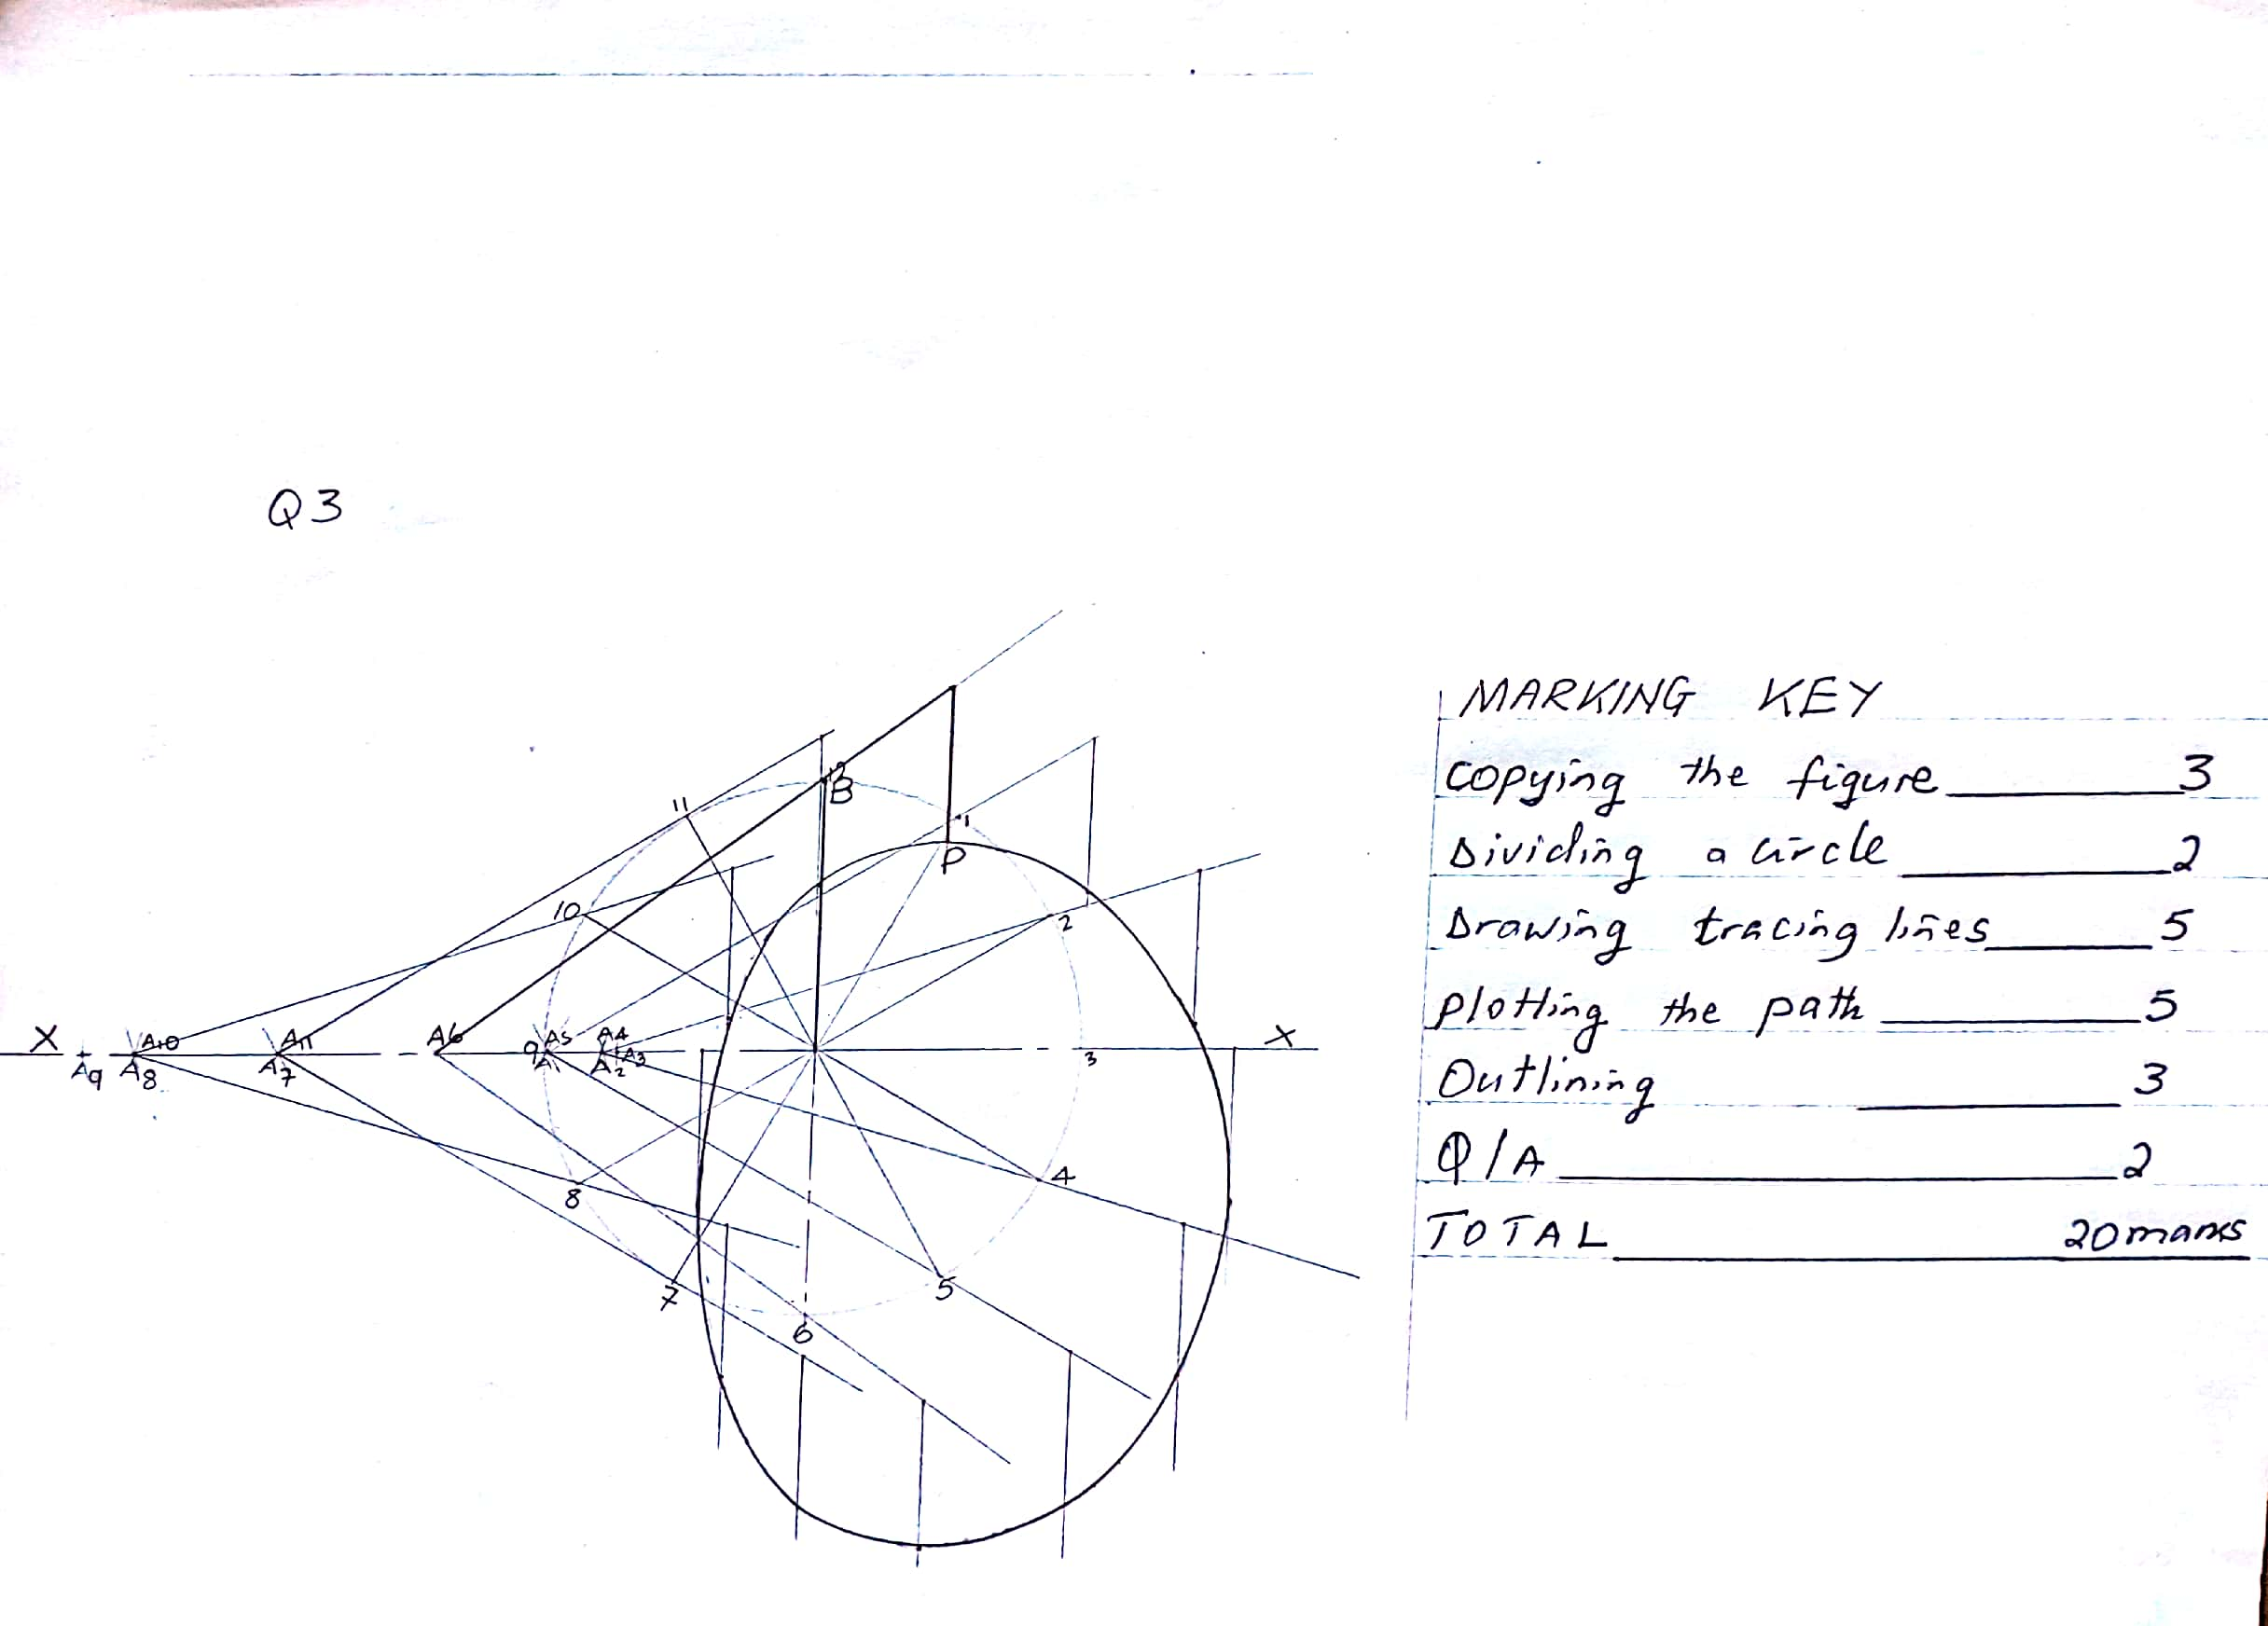 Q3
12
B
11
1
P
10
2
X A10 A11 A6 A5 A4 X
A9 A8 A7 9 A1 A2 A3 3
8
4
7
5
6
MARKING KEY
Copying the figure 3
Dividing a circle 2
Drawing tracing lines 5
plotting the path 5
Outlining 3
Q/A 2
TOTAL 20marks